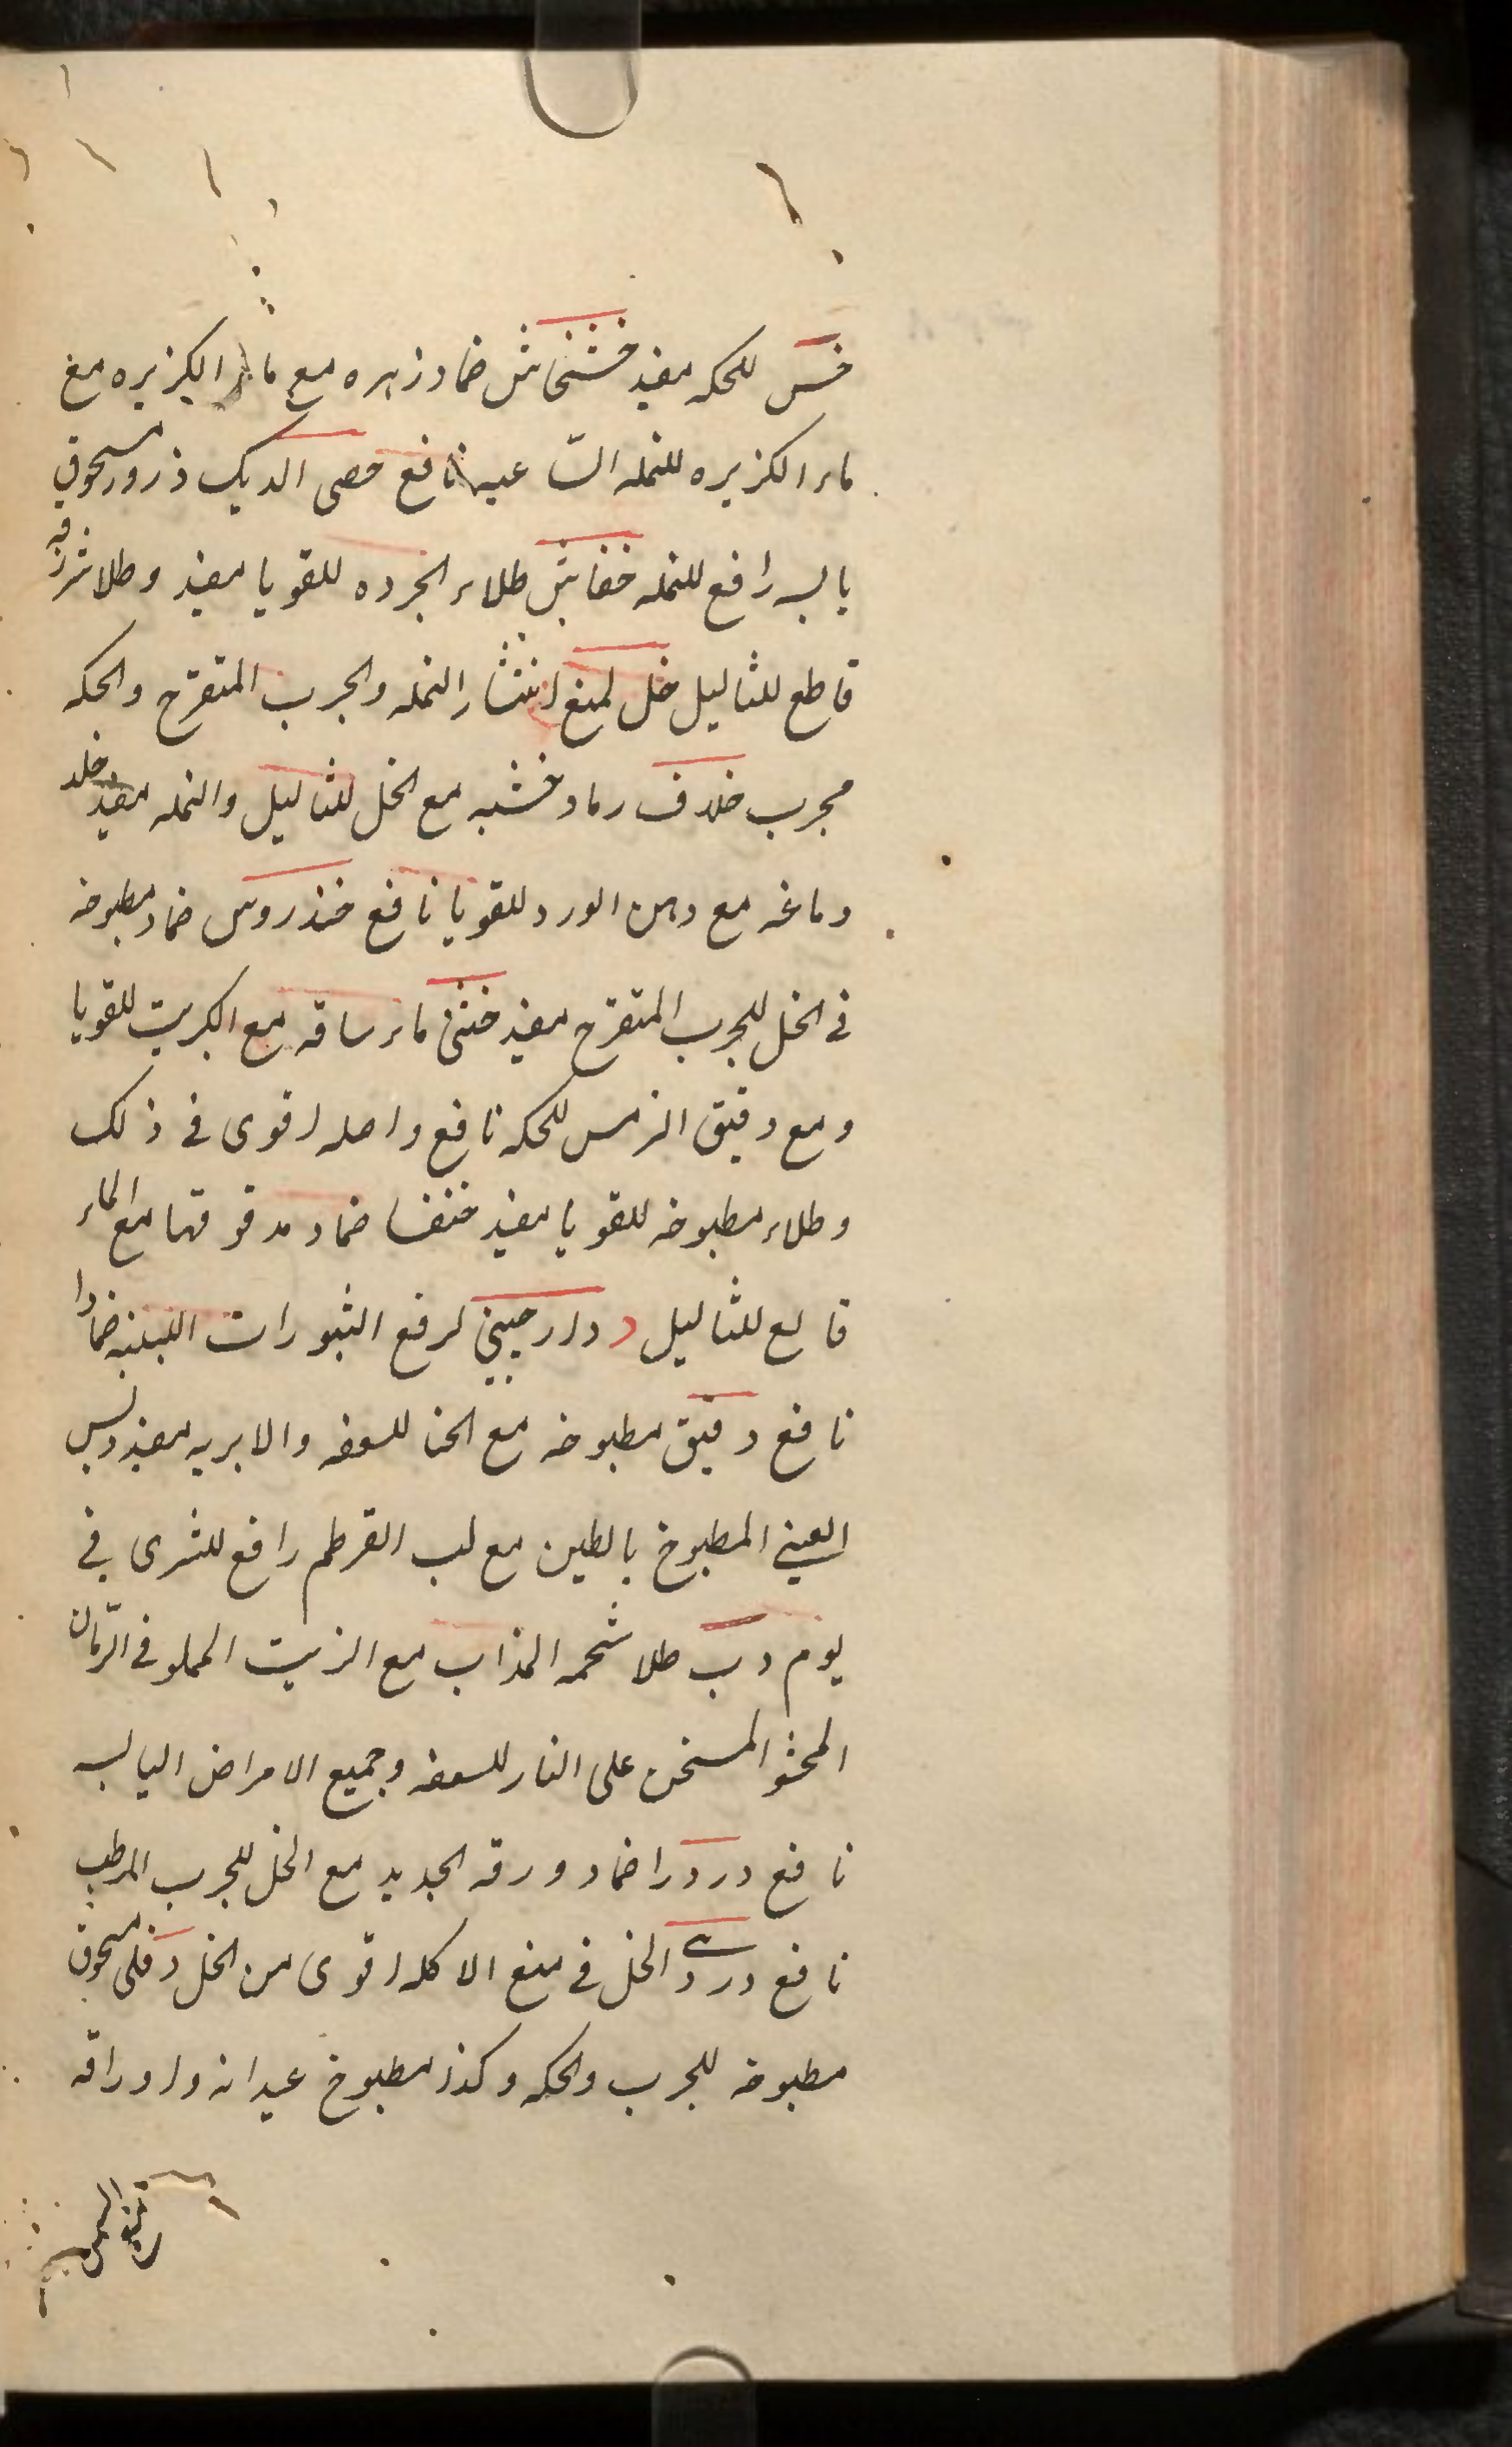 خس للحكه مفيد خشخاش ضماد زهره مع ماء الكزيره مع
ماء الكزيره للنمله الساعيه نافع خصى الديك ذرور مسحوق
يابسه رافع للنمله خفاش طلاء الجرده للقوبا مفيد وطلا شرزقه
قاطع للثاليل خل لمنع انتشار النمله والجرب المتقرح والحكه
مجرب خلاف رماد خشبه مع الخل للثاليل والنمله مفيد خلد
دماغه مع دهن الورد للقوبا نافع خندروس ضماد مطبوخه
فى الخل للجرب المتقرح مفيد خنثى ماء ساقه مع الكبريت للقوبا
ومع دقيق الترمس للحكه نافع واصله اقوى فى ذلك
وطلاء مطبوخه للقوبا مفيد خنفسا ضماد مدقوقها مع الماء
قالع للثاليل د دارچينى لرفع الثبورات اللبنيه ضمادا
نافع دقيق مطبوخه مع الخل للسعفه والابريه مفيد دبس
العنبى المطبوخ بالطين مع لب القرطم رافع للشرى فى
يوم دب طلا شحمه المذاب مع الزيت المملو فى الرمان
المحشو المسخن على النار للسعفه وجميع الامراض اليابسه
نافع دردار ضماد ورقه الجديد مع الخل للجرب المرطب
نافع دردى الخل فى منع الاكله اقوى من الخل دفلى مسحوق
مطبوخه للجرب والحكه وكذا مطبوخ عيدانه واوراقه